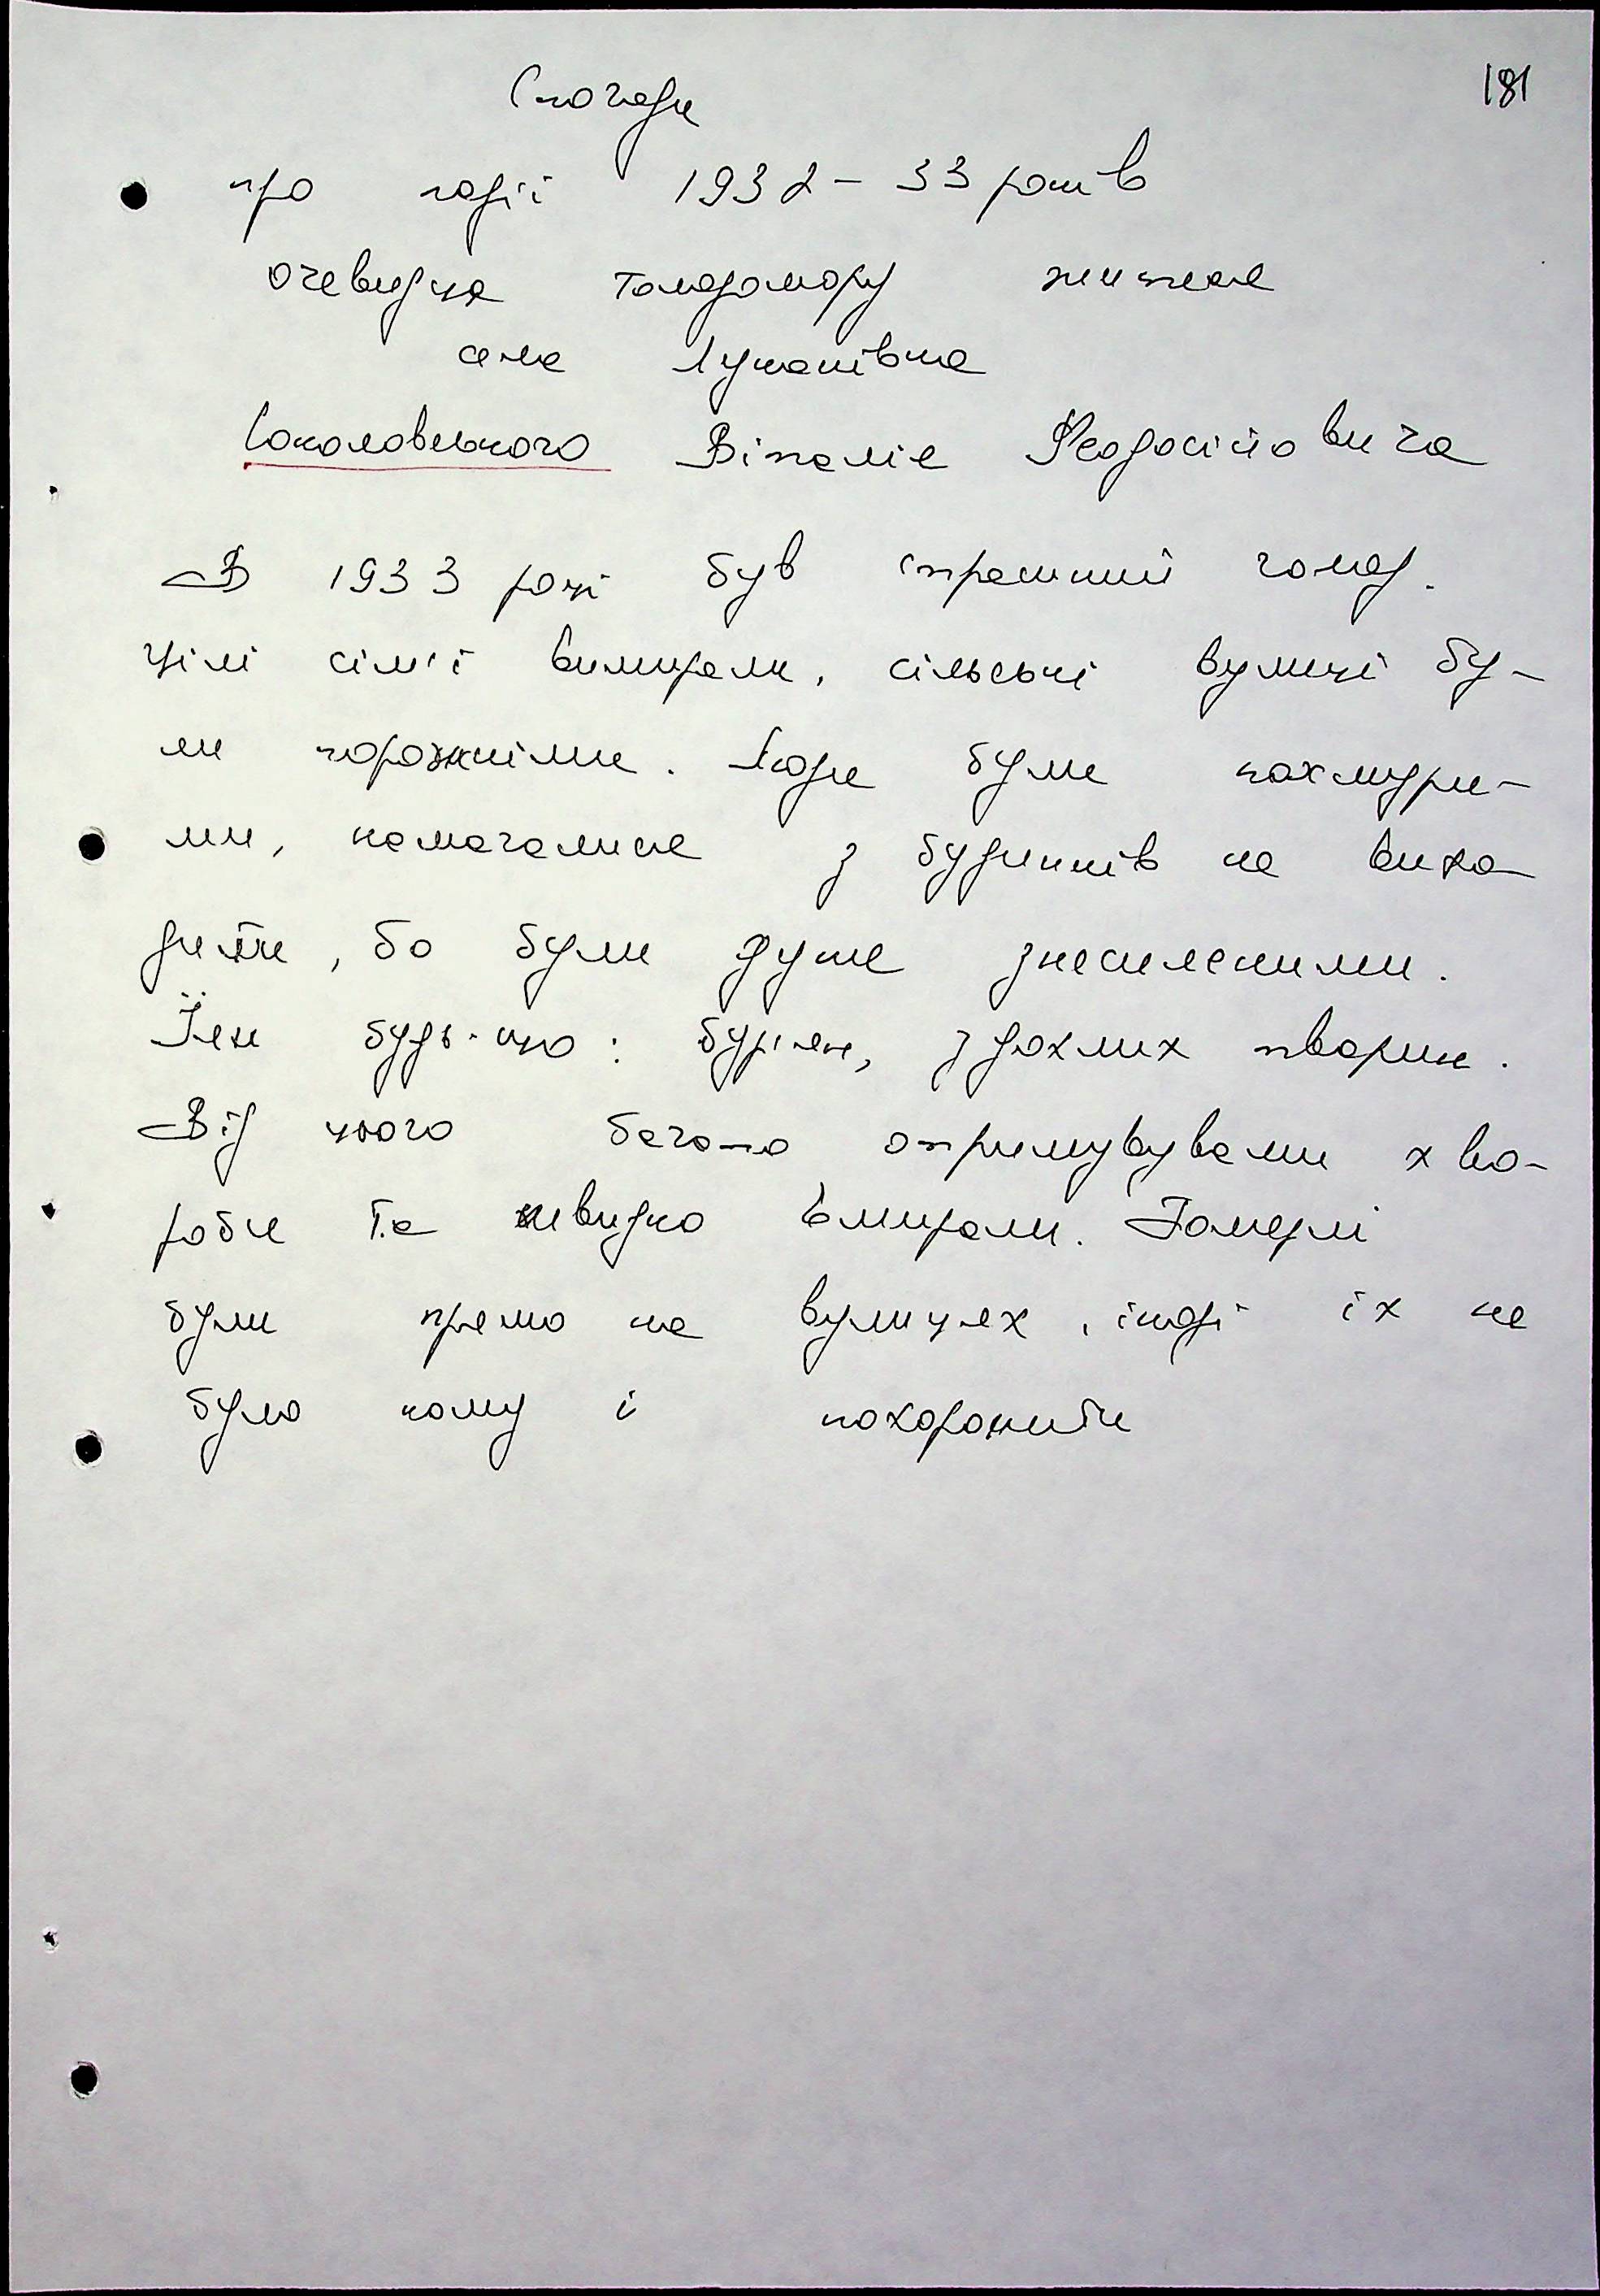 181
Спогади
про події 1932-33 років
очевидця Голодомору жителя
села Лукашівка
Соколовського Віталія Феодосійовича
В 1933 році був страшний голод.
Цілі сім'ї вимирали, сільські вулиці бу-
ли порожніми. Люди були похмури-
ми, намагалися з будинків не вихо
дити, бо були дуже знесиленими.
Їли будь-що: бур'ян, здохлих тварин.
Від цього багато отримували хво-
роби та швидко вмирали. Померлі
були прямо на вулицях, іноді їх не
було кому і похоронити